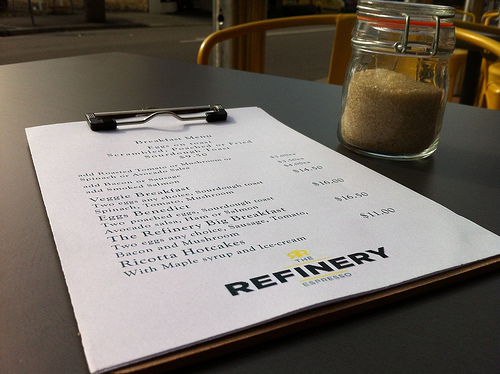 Breakfast Menu
Eggs on toast
Scrambled, Poached or Fried
Sourdough toast
$9.50
add Roasted Tomato or Mushroom or
Spinach or Avocado Salsa
add Bacon or Sausage
add Smoked Salmon
Veggie Breakfast $14.50
Two eggs any choice, Sourdough toast
Spinach, Tomato, Mushroom
Eggs Benedict $16.00
Two poached eggs, sourdough toast
Avocado salsa, Ham or Salmon
The Refinery Big Breakfast $16.50
Two eggs any choice, Sausage, Tomato,
Bacon and Mushroom
Ricotta Hotcakes $11.00
With Maple syrup and Ice-cream
THE
REFINERY
ESPRESSO